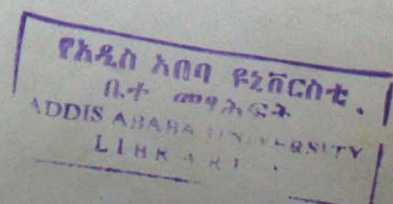 የአዲስ አበባ ዩኒቨርስቲ
ቤተ መፃሕፍት
ADDIS ABABA UNIVERSITY
LIBRARY